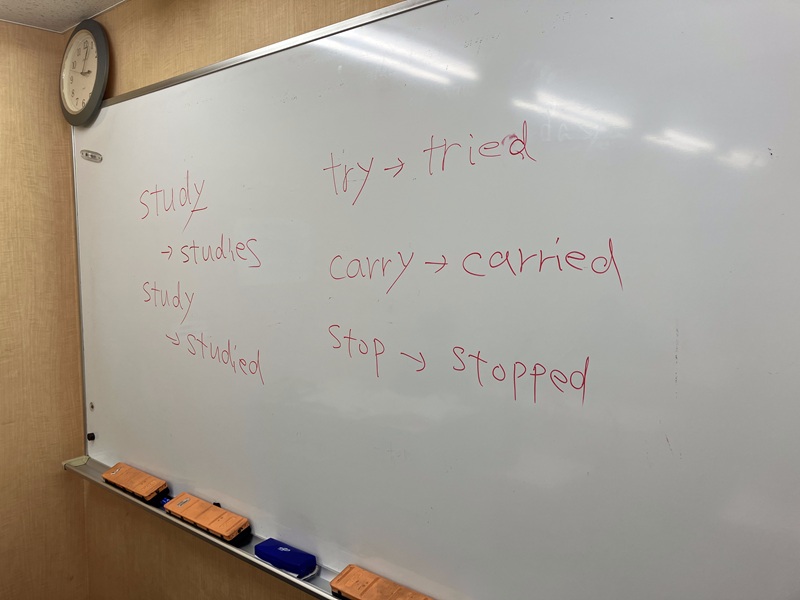 study
→ studies
study
→ studied
try → tried
carry → carried
stop → stopped